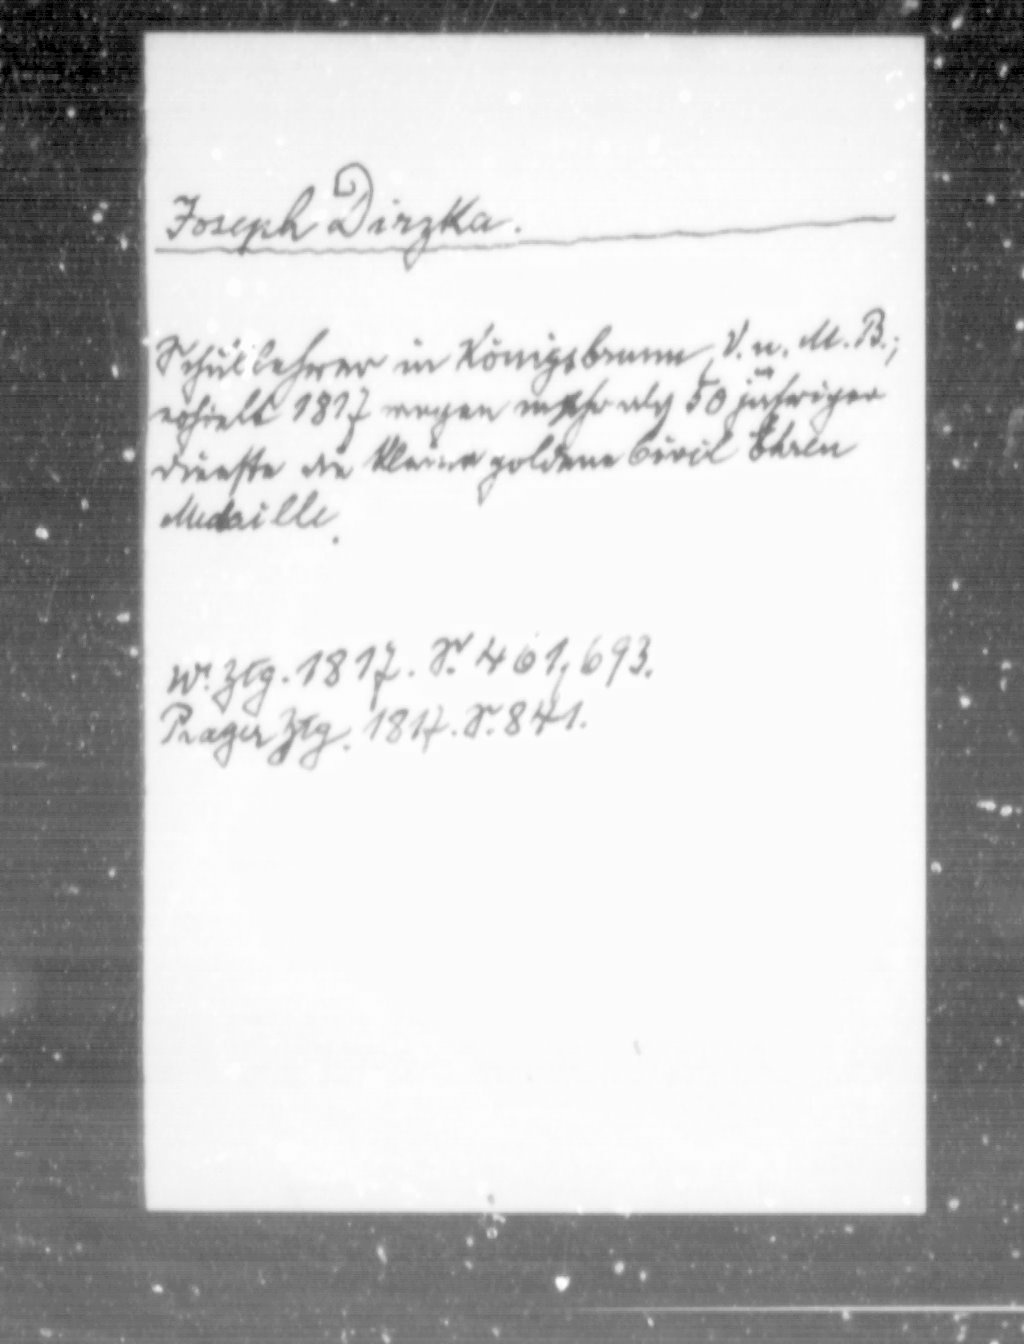 Joseph Dirzka.
Schullehrer in Königsbrunn, V. u. M. B.;
erhielt 1817 wegen mehr als 50 jähriger
Dienste die kleine goldene Civil Ehren
Medaille.
Wr. Ztg. 1817. S. 461, 693.
Prager Ztg. 1817. S. 841.